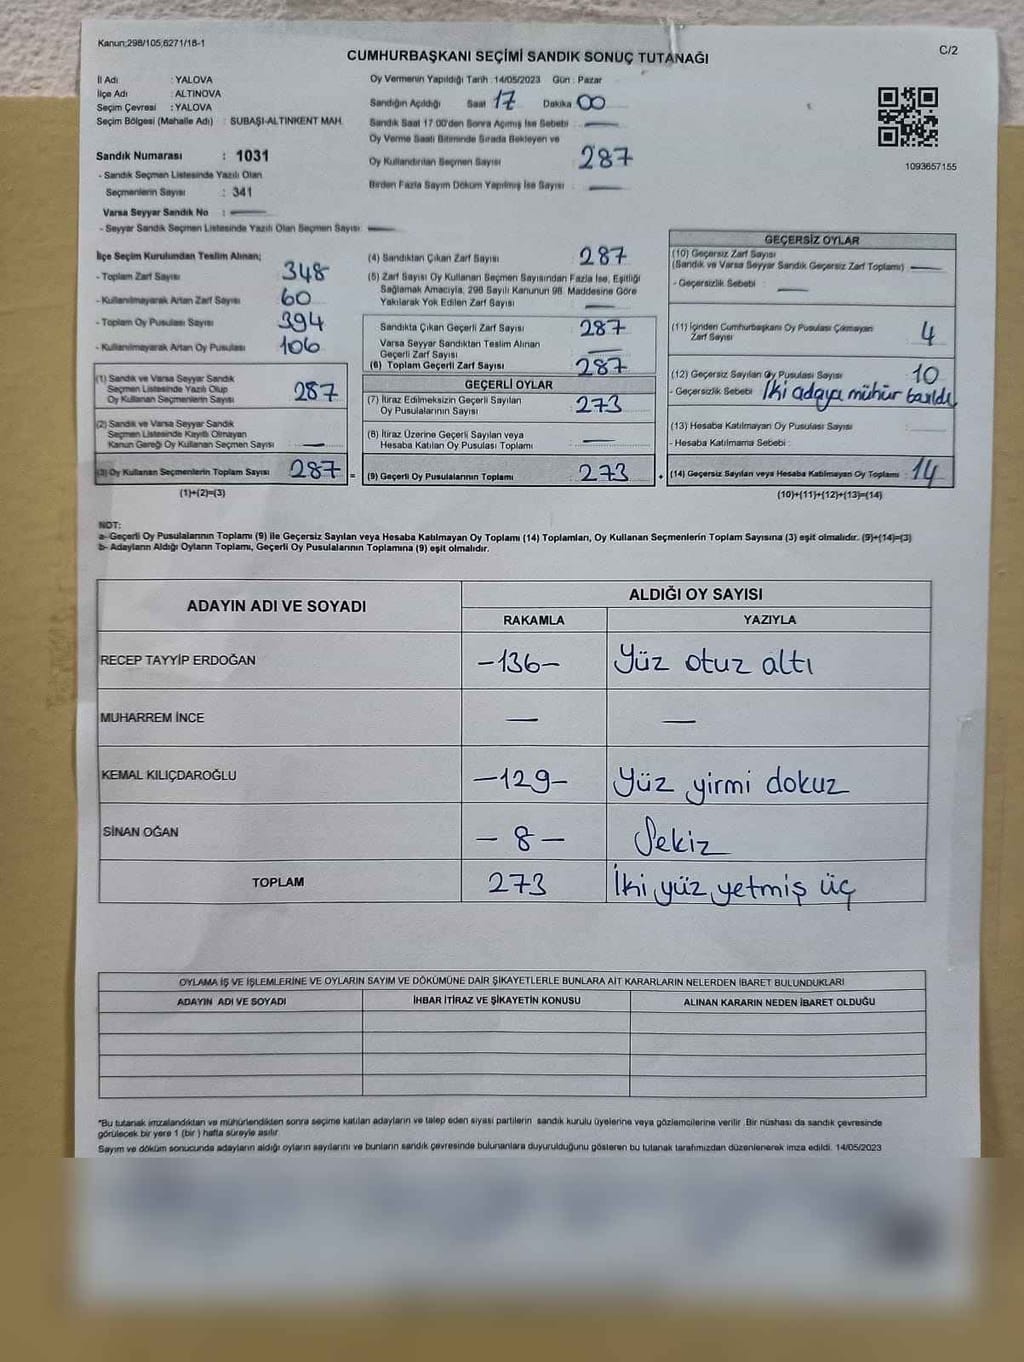 Kanun;298/105,6271/18-1
C/2
CUMHURBAŞKANI SEÇİMİ SANDIK SONUÇ TUTANAĞI
İl Adı : YALOVA
İlçe Adı : ALTINOVA
Seçim Çevresi : YALOVA
Seçim Bölgesi (Mahalle Adı) : SUBAŞI-ALTINKENT MAH.
Sandık Numarası : 1031
- Sandık Seçmen Listesinde Yazılı Olan
Seçmenlerin Sayısı : 341
Varsa Seyyar Sandık No :
- Seyyar Sandık Seçmen Listesinde Yazılı Olan Seçmen Sayısı:
Oy Vermenin Yapıldığı Tarih :14/05/2023 Gün : Pazar
Sandığın Açıldığı Saat 17 Dakika 00
Sandık Saat 17 00'den Sonra Açımış İse Sebebi :
Oy Verme Saati Bitiminde Sırada Bekleyen ve
Oy Kullandırılan Seçmen Sayısı 287
Birden Fazla Sayım Döküm Yapılmış İse Sayısı :
1093657155
İlçe Seçim Kurulundan Teslim Alınan;
- Toplam Zarf Sayısı 348
- Kullanılmayarak Artan Zarf Sayısı 60
- Toplam Oy Pusulası Sayısı 394
- Kullanılmayarak Artan Oy Pusulası 106
(1) Sandık ve Varsa Seyyar Sandık
Seçmen Listesinde Yazılı Olup
Oy Kullanan Seçmenlerin Sayısı 287
(2) Sandık ve Varsa Seyyar Sandık
Seçmen Listesinde Kayıtlı Olmayan
Kanun Gereği Oy Kullanan Seçmen Sayısı —
(3) Oy Kullanan Seçmenlerin Toplam Sayısı 287 =
(1)+(2)=(3)
(4) Sandıktan Çıkan Zarf Sayısı : 287
(5) Zarf Sayısı Oy Kullanan Seçmen Sayısından Fazla İse, Eşitliği
Sağlamak Amacıyla, 298 Sayılı Kanunun 98. Maddesine Göre
Yakılarak Yok Edilen Zarf Sayısı :
Sandıkta Çıkan Geçerli Zarf Sayısı : 287
Varsa Seyyar Sandıktan Teslim Alınan
Geçerli Zarf Sayısı
(6) Toplam Geçerli Zarf Sayısı : 287
GEÇERLİ OYLAR
(7) İtiraz Edilmeksizin Geçerli Sayılan
Oy Pusulalarının Sayısı : 273
(8) İtiraz Üzerine Geçerli Sayılan veya
Hesaba Katılan Oy Pusulası Toplamı : —
(9) Geçerli Oy Pusulalarının Toplamı : 273 +
GEÇERSİZ OYLAR
(10) Geçersiz Zarf Sayısı
(Sandık ve Varsa Seyyar Sandık Geçersiz Zarf Toplamı)
- Geçersizlik Sebebi :
(11) İçinden Cumhurbaşkanı Oy Pusulası Çıkmayan
Zarf Sayısı : 4
(12) Geçersiz Sayılan Oy Pusulası Sayısı : 10
- Geçersizlik Sebebi : İki adaya mühür basıldı
(13) Hesaba Katılmayan Oy Pusulası Sayısı :
- Hesaba Katılmama Sebebi :
(14) Geçersiz Sayılan veya Hesaba Katılmayan Oy Toplamı : 14
(10)+(11)+(12)+(13)=(14)
NOT:
a- Geçerli Oy Pusulalarının Toplamı (9) ile Geçersiz Sayılan veya Hesaba Katılmayan Oy Toplamı (14) Toplamları, Oy Kullanan Seçmenlerin Toplam Sayısına (3) eşit olmalıdır. (9)+(14)=(3)
b- Adayların Aldığı Oyların Toplamı, Geçerli Oy Pusulalarının Toplamına (9) eşit olmalıdır.
ADAYIN ADI VE SOYADI
ALDIĞI OY SAYISI
RAKAMLA YAZIYLA
RECEP TAYYİP ERDOĞAN -136- Yüz otuz altı
MUHARREM İNCE — —
KEMAL KILIÇDAROĞLU -129- Yüz yirmi dokuz
SİNAN OĞAN - 8 - Sekiz
TOPLAM 273 İki yüz yetmiş üç
OYLAMA İŞ VE İŞLEMLERİNE VE OYLARIN SAYIM VE DÖKÜMÜNE DAİR ŞİKAYETLERLE BUNLARA AİT KARARLARIN NELERDEN İBARET BULUNDUKLARI
ADAYIN ADI VE SOYADI İHBAR İTİRAZ VE ŞİKAYETİN KONUSU ALINAN KARARIN NEDEN İBARET OLDUĞU
*Bu tutanak imzalandıktan ve mühürlendikten sonra seçime katılan adayların ve talep eden siyasi partilerin sandık kurulu üyelerine veya gözlemcilerine verilir. Bir nüshası da sandık çevresinde
görülecek bir yere 1 (bir ) hafta süreyle asılır
Sayım ve döküm sonucunda adayların aldığı oyların sayılarını ve bunların sandık çevresinde bulunanlara duyurulduğunu gösteren bu tutanak tarafımızdan düzenlenerek imza edildi. 14/05/2023